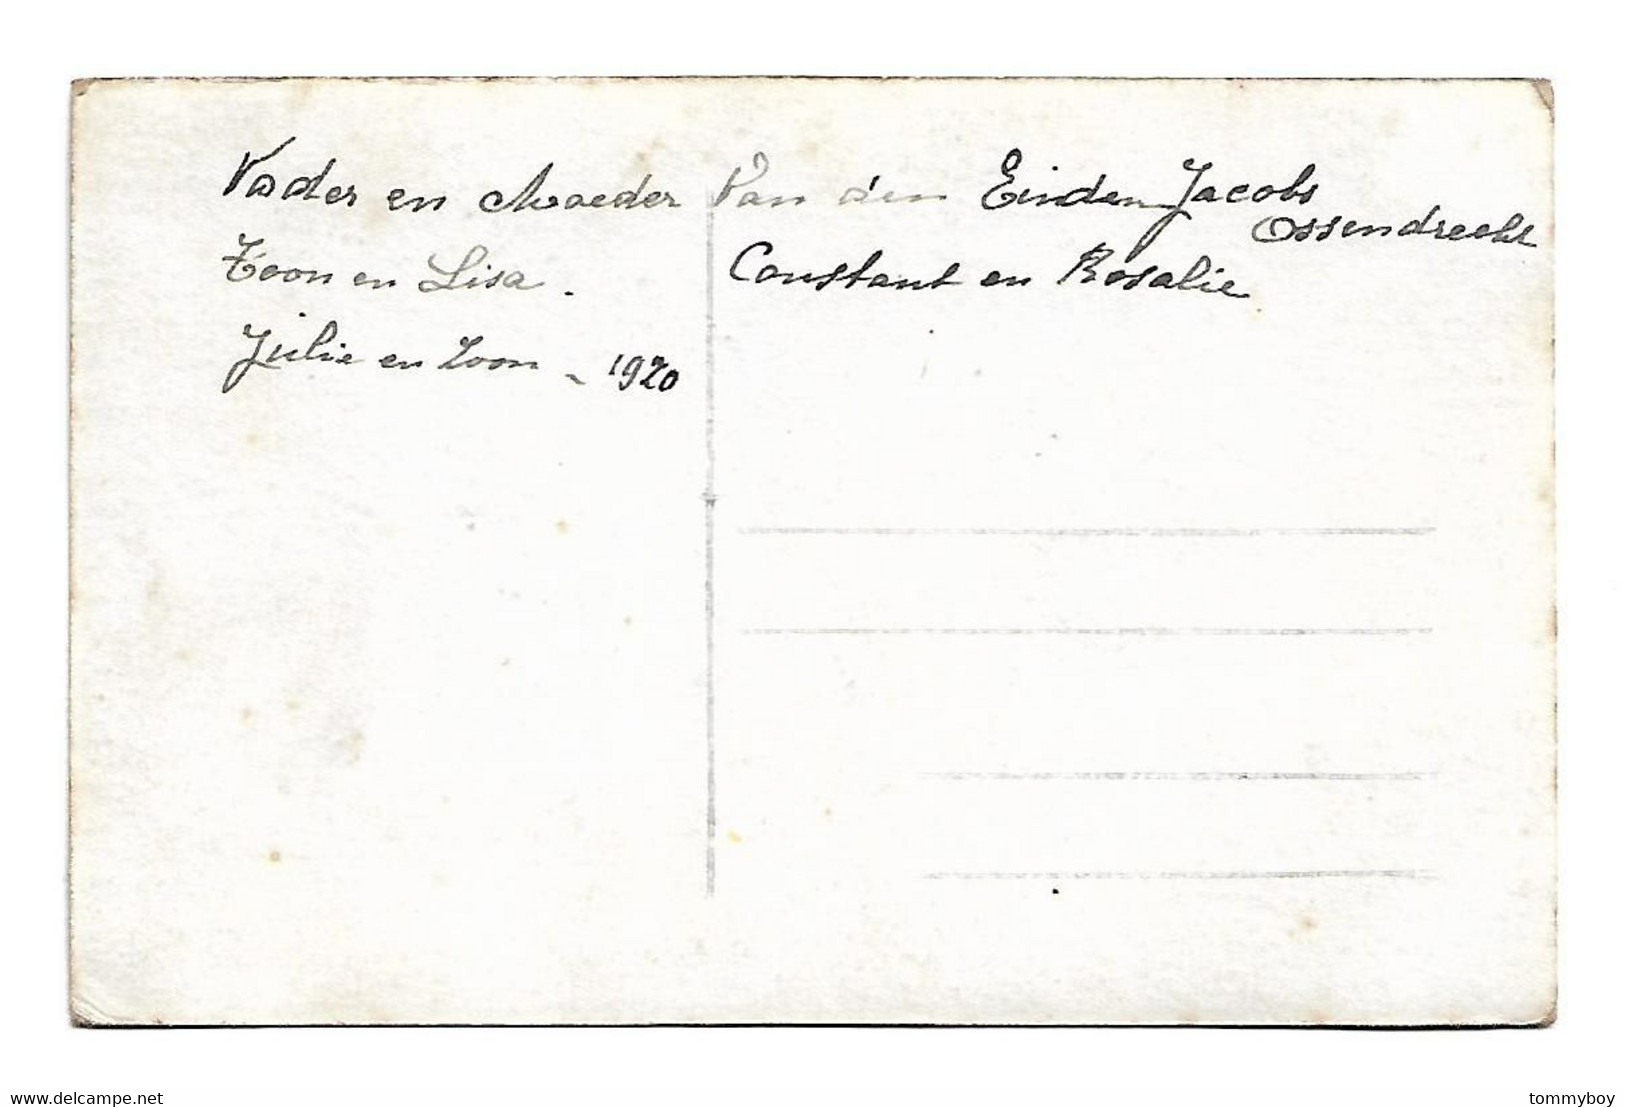 Vader en Moeder Van den Einden Jacobs
Ossendrecht
Toon en Lisa. Constant en Rosalie
Julie en Loon - 1920
www.delcampe.net
tommyboy